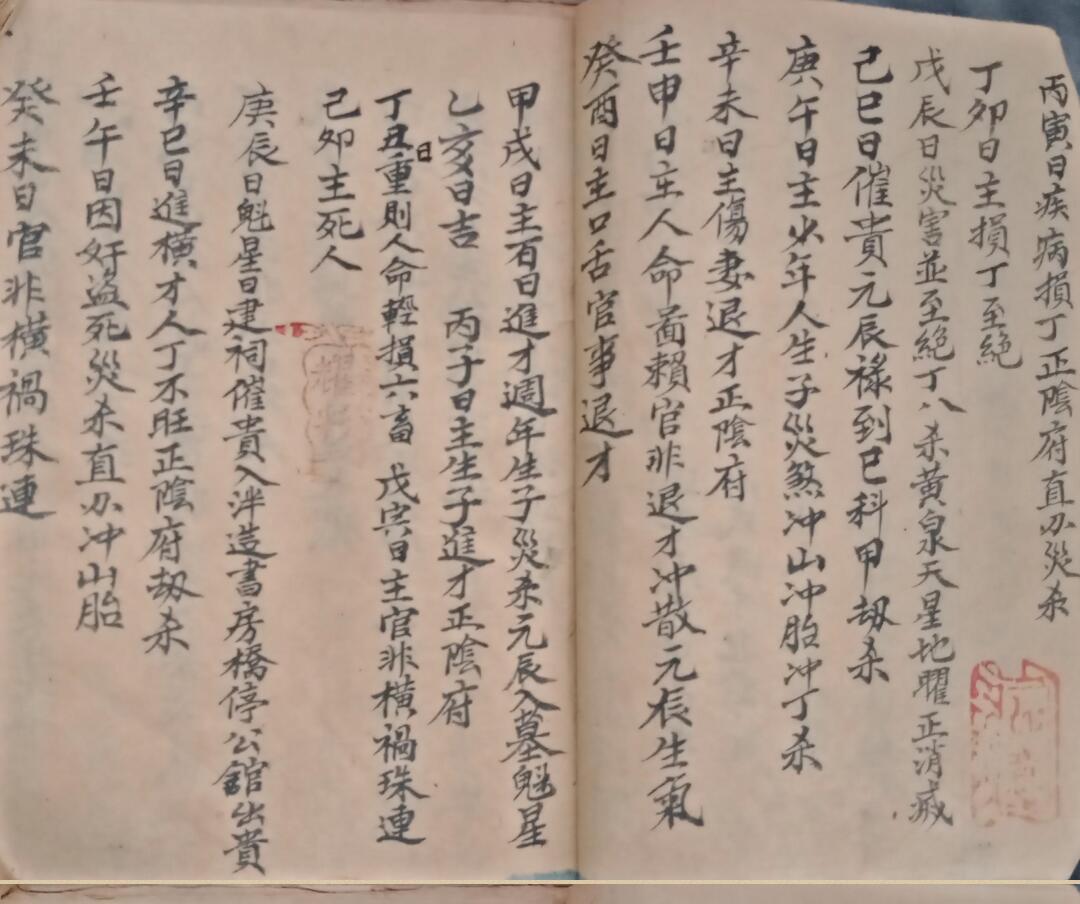 丙寅日疾病損丁正陰府直办災杀
丁夘日主損丁至絕
戊辰日災害並至絕丁八杀黄泉天星地曜正消滅
己巳日催貴元辰祿到巳科甲刼杀
庚午日主少年人生子災煞冲山冲胎冲丁杀
辛未日主傷妻退才正陰府
壬申日主人命啚賴官非退才冲散元辰生氣
癸酉日主口舌官事退才
甲戌日主百日進才週年生子災杀元辰入墓魁星
乙亥日吉 丙子日主生子進才正陰府
丁丑日重則人命輕損六畜 戊寅日主官非橫禍珠連
己夘主死人
庚辰日魁星日建祠催貴入泮造書房橋停公館出貴
辛巳日進橫才人丁不旺正陰府刼杀
壬午日因奸盗死災杀直办冲山胎
癸未日官非橫禍珠連